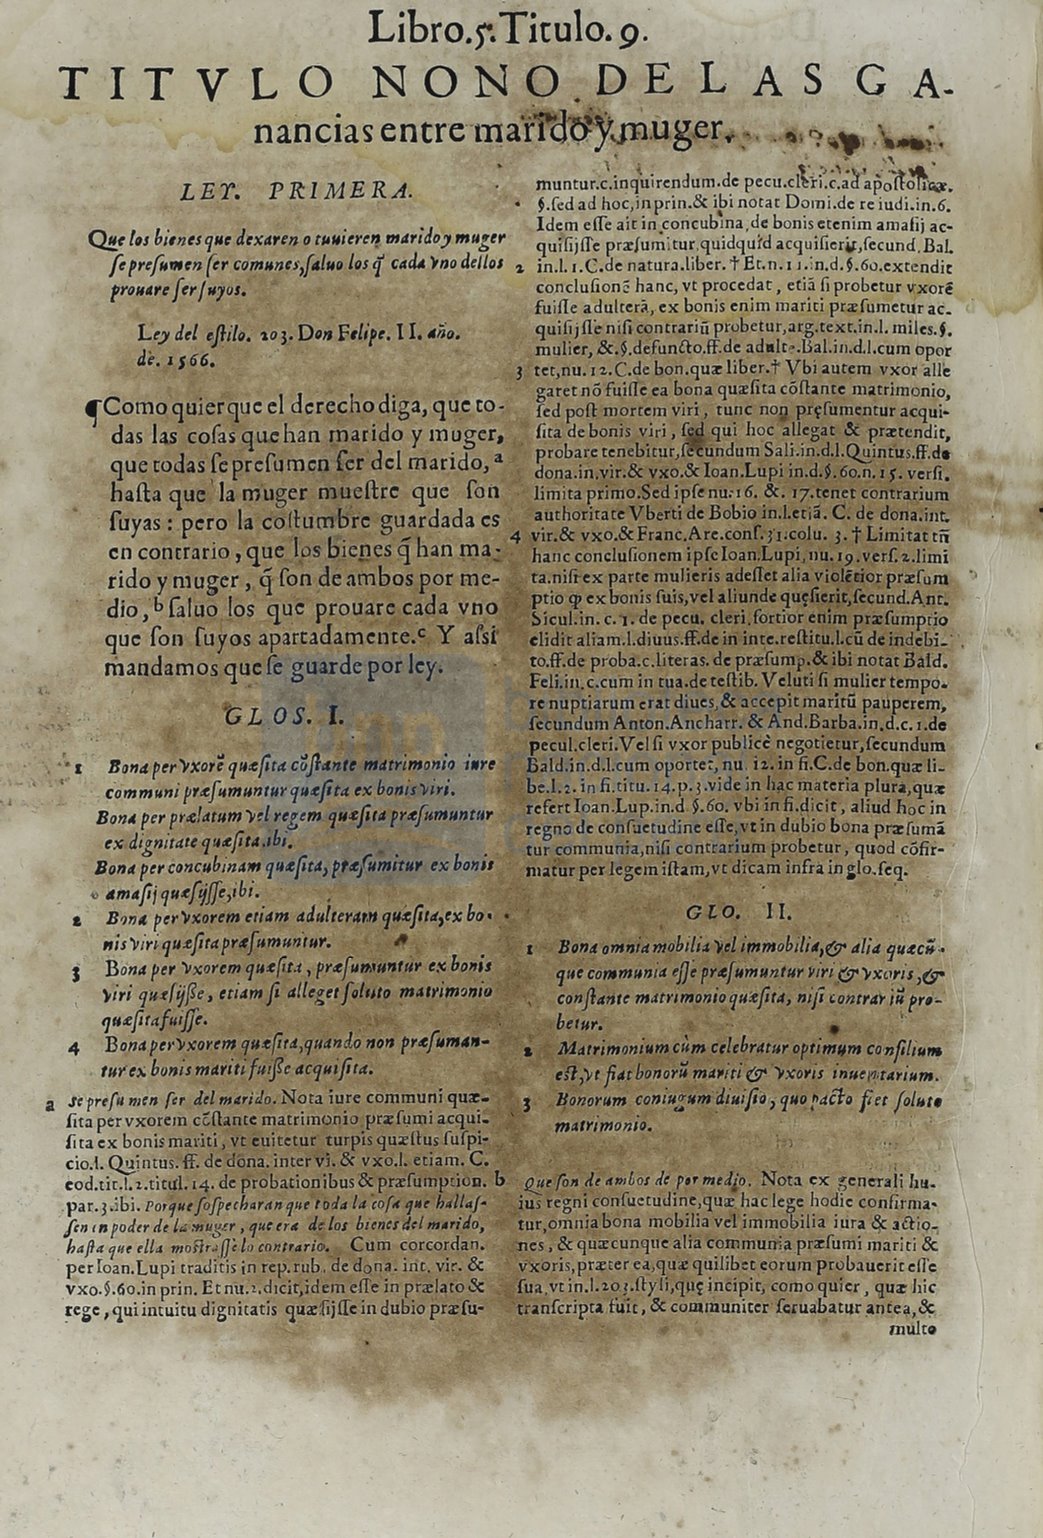 Libro.5.Titulo.9.
TITVLO NONO DE LAS GA-
nancias entre marido y muger.
LEY. PRIMERA.
Que los bienes que dexaren o tuuieren marido y muger
se presumen ser comunes, saluo los q̃ cada vno dellos
prouare ser suyos.
Ley del estilo. 203. Don Felipe. II. año.
de. 1566.
¶Como quier que el derecho diga, que to-
das las cosas que han marido y muger,
que todas se presumen ser del marido, ª
hasta que la muger muestre que son
suyas: pero la costumbre guardada es
en contrario, que los bienes q̃ han ma-
rido y muger, q̃ son de ambos por me-
dio, ᵇ saluo los que prouare cada vno
que son suyos apartadamente.ᶜ Y assi
mandamos que se guarde por ley.
GLOS. I.
1 Bona per vxorē quæsita cōstante matrimonio iure
communi præsumuntur quæsita ex bonis viri.
Bona per prælatum vel regem quæsita præsumuntur
ex dignitate quæsita.ibi.
Bona per concubinam quæsita, præsumitur ex bonis
amasij quæsijsse,ibi.
2 Bona per vxorem etiam adulteram quæsita, ex bo-
nis viri quæsita præsumuntur.
3 Bona per vxorem quæsita, præsumuntur ex bonis
viri quæsijsse, etiam si alleget soluto matrimonio
quæsita fuisse.
4 Bona per vxorem quæsita, quando non præsuman-
tur ex bonis mariti fuisse acquisita.
a se presumen ser del marido. Nota iure communi quæ-
sita per vxorem cōstante matrimonio præsumi acqui-
sita ex bonis mariti, vt euitetur turpis quæstus suspi-
cio.l. Quintus. ff. de dona. inter vi. & vxo.l. etiam. C.
eod.tit.l.2.titul. 14. de probationibus & præsumption.
par.3.ibi. Porque sospecharan que toda la cosa que hallas-
sen en poder de la muger, que era de los bienes del marido,
hasta que ella mostrasse lo contrario. Cum corcordan.
per Ioan.Lupi traditis in rep.rub. de dona. int. vir. &
vxo.§.60.in prin. Et nu.2.dicit,idem esse in prælato &
rege, qui intuitu dignitatis quæsijsse in dubio præsu-
muntur.c.inquirendum.de pecu.cleri.c.ad apostolicæ.
§.sed ad hoc,in prin.& ibi notat Domi.de re iudi.in.6.
Idem esse ait in concubina, de bonis etenim amasij ac-
quisijsse præsumitur,quidquid acquisierit,secund.Bal.
2 in.l.1.C.de natura.liber. † Et.n.11.in.d.§.60.extendit
conclusionē hanc, vt procedat, etiā si probetur vxorē
fuisse adulterā, ex bonis enim mariti præsumetur ac-
quisijsse nisi contrariū probetur,arg.text.in.l. miles.§.
mulier, &.§.defuncto.ff.de adult.Bal.in.d.l.cum opor
3 tet,nu.12.C.de bon.quæ liber.† Vbi autem vxor alle
garet nō fuisse ea bona quæsita cōstante matrimonio,
sed post mortem viri, tunc non pręsumentur acqui-
sita de bonis viri, sed qui hoc allegat & prætendit,
probare tenebitur,secundum Sali.in.d.l.Quintus.ff.de
dona.in.vir.& vxo.& Ioan.Lupi in.d.§.60.n.15. versi.
limita primo.Sed ipse nu.16. &. 17.tenet contrarium
authoritate Vberti de Bobio in.l.etiā. C. de dona.int.
4 vir.& vxo.& Franc.Are.cons.31.colu. 3. † Limitat tñ
hanc conclusionem ipse Ioan.Lupi, nu.19.vers.2.limi
ta.nisi ex parte mulieris adesset alia violētior præsum
ptio ꝙ ex bonis suis,vel aliunde quęsierit,secund.Ant.
Sicul.in. c.1. de pecu. cleri,fortior enim præsumptio
elidit aliam.l.diuus.ff.de in inte.restitu.l.cū de indebi-
to.ff.de proba.c.literas. de præsump.& ibi notat Bald.
Feli.in.c.cum in tua.de testib. Veluti si mulier tempo-
re nuptiarum erat diues,& accepit maritū pauperem,
secundum Anton.Ancharr. & And.Barba.in.d.c.1.de
pecul.cleri.Vel si vxor publicè negotietur,secundum
Bald.in.d.l.cum oportet, nu. 12. in fi.C.de bon.quæ li-
be.l.2. in fi.titu.14.p.3.vide in hac materia plura,quæ
refert Ioan.Lup.in.d §.60. vbi in fi.dicit, aliud hoc in
regno de consuetudine esse,vt in dubio bona præsumā
tur communia,nisi contrarium probetur, quod cōfir-
matur per legem istam,vt dicam infra in glo.seq.
GLO. II.
1 Bona omnia mobilia vel immobilia,& alia quæcū-
que communia esse præsumuntur viri & vxoris,&
constante matrimonio quæsita, nisi contrariū pro-
betur.
2 Matrimonium cùm celebratur optimum consilium
est,vt fiat bonorū mariti & vxoris inuentarium.
3 Bonorum coniugum diuisio, quo pacto fiet soluto
matrimonio.
b Que son de ambos de por medio. Nota ex generali hu-
ius regni consuetudine,quæ hac lege hodie confirma-
tur,omnia bona mobilia vel immobilia iura & actio-
nes, & quæcunque alia communia præsumi mariti &
vxoris,præter ea,quæ quilibet eorum probauerit esse
sua,vt in.l.203.styli,quę incipit, como quier, quæ hic
transcripta fuit, & communiter seruabatur antea,&
multo